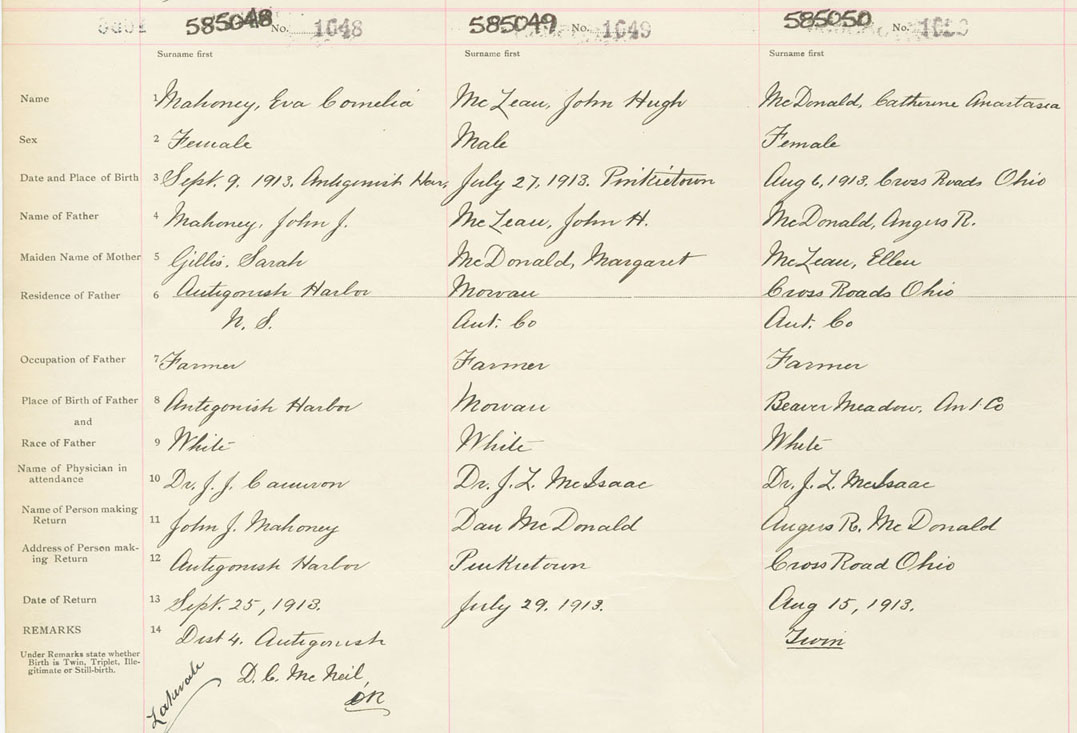 585048 No. 1648 585049 No. 1649 585050 No.
Surname first Surname first Surname first
Name 1 Mahoney, Eva Cornelia McLean, John Hugh McDonald, Catherine Anastasia
Sex 2 Female Male Female
Date and Place of Birth 3 Sept. 9. 1913. Antigonish Har. July 27, 1913. Pinkietown Aug 6, 1913. Cross Roads Ohio
Name of Father 4 Mahoney, John J. McLean, John H. McDonald, Angus R.
Maiden Name of Mother 5 Gillis, Sarah McDonald, Margaret McLean, Ellen
Residence of Father 6 Antigonish Harbor Mowan Cross Roads Ohio
N. S. Ant. Co Ant. Co
Occupation of Father 7 Farmer Farmer Farmer
Place of Birth of Father 8 Antigonish Harbor Mowan Beaver Meadow, Ant Co
and
Race of Father 9 White White White
Name of Physician in
attendance 10 Dr. J. J. Cameron Dr. J. L. McIsaac Dr. J. L. McIsaac
Name of Person making
Return 11 John J. Mahoney Dan McDonald Angus R. McDonald
Address of Person mak-
ing Return 12 Antigonish Harbor Pinkietown Cross Road Ohio
Date of Return 13 Sept. 25, 1913. July 29. 1913. Aug 15, 1913.
REMARKS 14 Dist 4. Antigonish Twin
Under Remarks state whether
Birth is Twin, Triplet, Ille-
gitimate or Still-birth.
D. C. McNeil,
DR
Lakevale